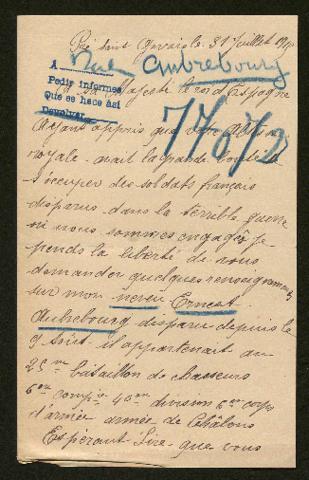 Pré Saint Gervais le 31 Juillet
A
Pedir informes
Que se hace así
Devolver
Aubrebourg
A sa Majesté le roi d'Espagne
77072
Ayant appris que votre Altesse
royale avait la grande bonté de
s'occuper des soldats français
disparus dans la terrible guerre
où nous sommes engagés je
prends la liberté de vous
demander quelques renseignements
sur mon neveu Ernest
Aubrebourg disparu depuis le
9 Août il appartenait au
25me bataillon de chasseurs
6em compie 40em division 6em corps
d'armée armée de Châlons
Espérant Sire que vous